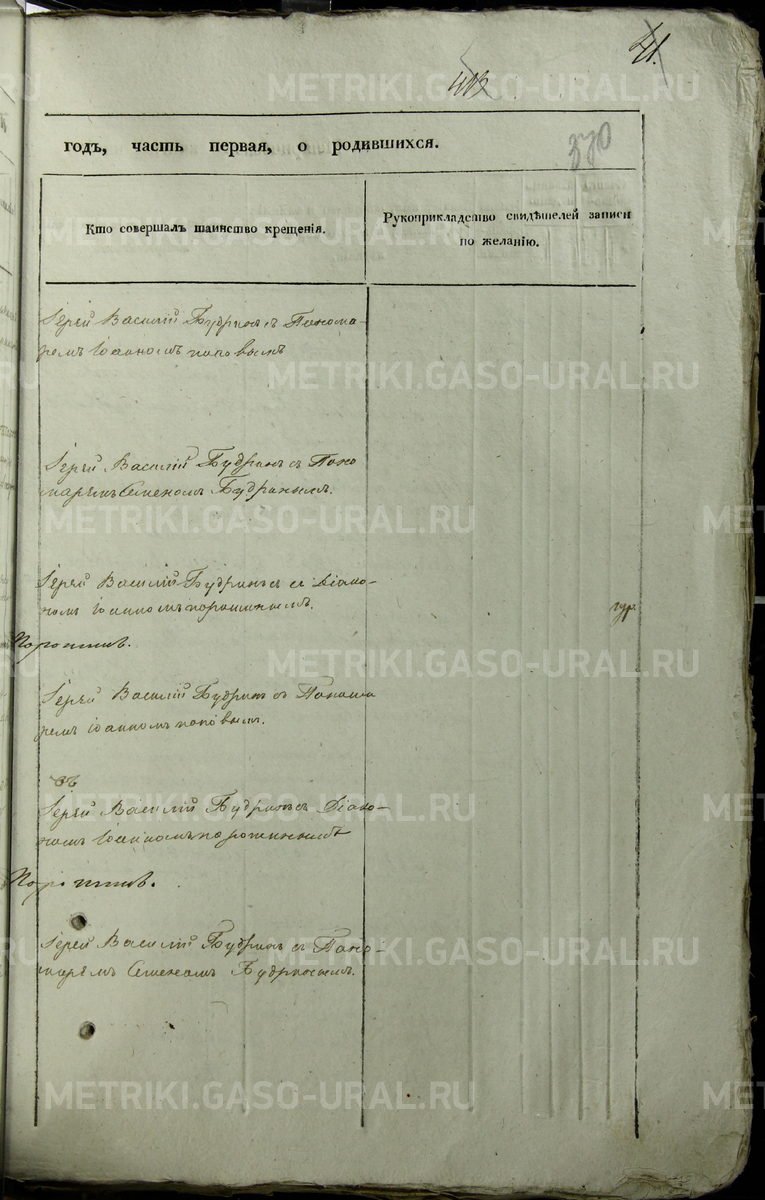 41.
413
370
годъ, часть первая, о родившихся.
Кто совершалъ таинство крещенія.
Рукоприкладство свидѣтелей записи
по желанію.
Іерей Василій Будринъ съ Понома-
ремъ Іоанномъ поповымъ
Іерей Василій Будринъ с Поно
маремъ Семеномъ Будринымъ.
Іерей Василій Будринъ съ діако-
номъ Іоанномъ порошинымъ.
Іерей Василій Будринъ съ Понома
ремъ Іоанномъ поповымъ.
съ
Іерей Василій Будринъ Діако-
номъ Іоанномъ порошинымъ
Іерей Василій Будринъ с Поно-
маремъ Семеномъ Будринымъ.
METRIKI.GASO-URAL.RU